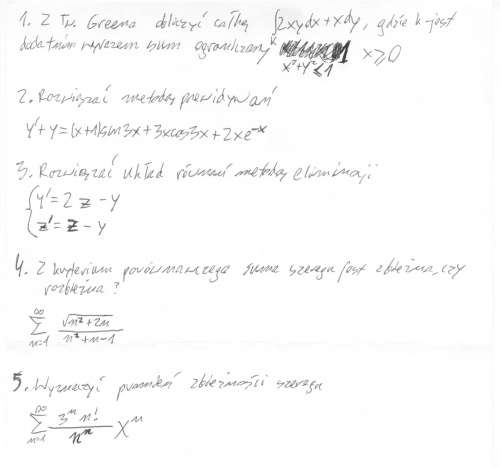 1. Z Tw. Greena obliczyć całkę ∫ₖ 2xydx + xdy, gdzie k-jest
dodatnim brzegiem ograniczony x²+y²≤1 x≥0
2. Rozwiązać metodą przewidywań
y'+y=(x+1)sin3x+3xcos3x+2xe⁻ˣ
3. Rozwiązać układ równań metodą eliminacji
{ y'=2z-y
z'=z-y
4. Z kryterium porównawczego suma szeregu jest zbieżna, czy
rozbieżna?
∞∑n=1 √(n²+2n) / (n²+n-1)
5. Wyznaczyć promień zbieżności szeregu
∞∑n=1 3ⁿn! / nⁿ xⁿ